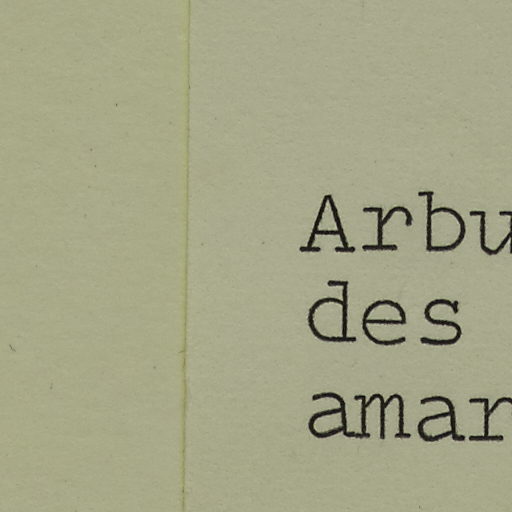 Arbu
des
amar